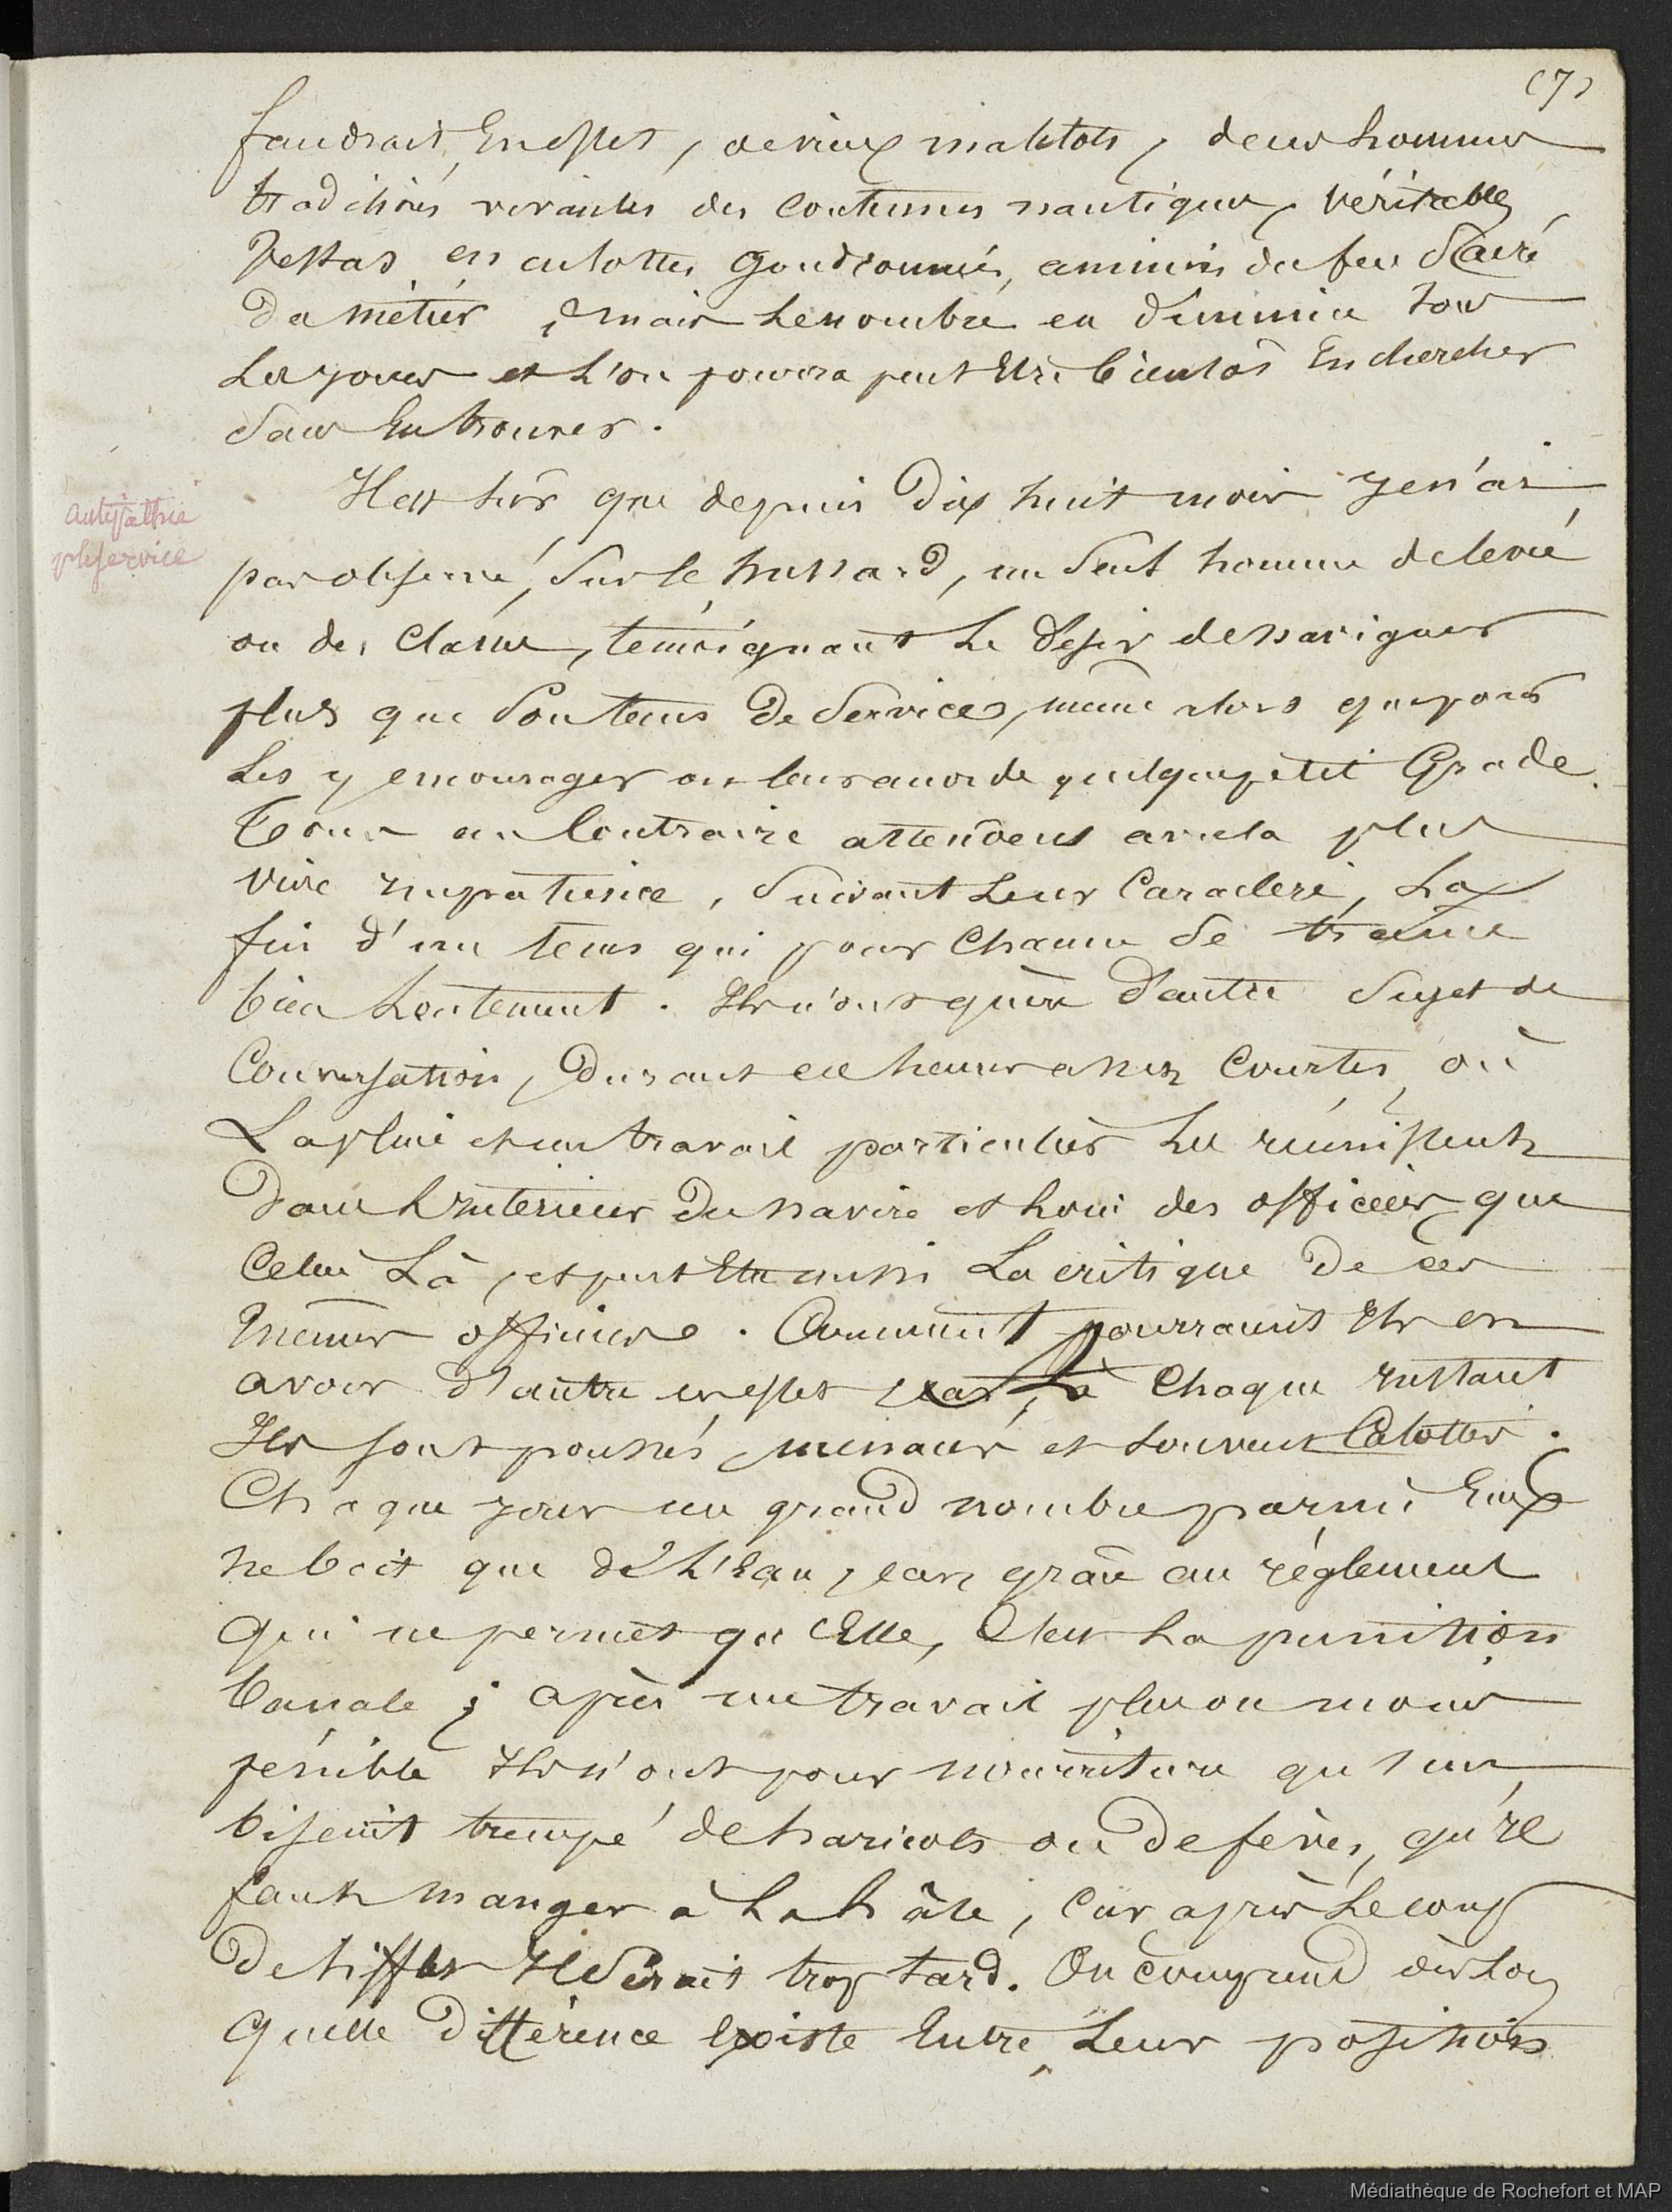 (7)
faudrait, En effet, de vieux matelots, de ces hommes
traditions vivantes des coutumes nautiques, véritables
Vestas en culottes goudronnées, animés du feu Sacré
Du métier, mais Le nombre en diminue tous
Les jours et L'on pourra peut Etre bientôt En chercher
Sans En trouver.
Il est sûr que depuis Dix huit mois Je n'ai
antipathie
pr le service
pas observé, Sur le hussard, un Seul homme de levée
ou des Classes, témoignant Le Desir de naviguer
plus que Son tems De Services, même alors que pour
Les y encourager on leur accorde quelque petit Grade.
Tous au Contraire attendent avec la plus
Vive Impatience, Suivant Leur Caractere, La
fin d'un tems qui pour Chacun Se traîne
bien Lentement. Ils n'ont guère D'autre Sujet de
Conversation, Durant ces heures assez Courtes, où
La pluie et un travail particulier Les réunissent
Dans L'Intérieur Du navire et Loin des officiers que
Celui Là, et peut Etre aussi La critique De ces
mêmes officiers. Comment pourraient Ils en
avoir d'autre en effet car, à Chaque Instant
Ils sont poussés, menacés et souvent Calottés.
Chaque jour un grand nombre parmi Eux
ne boit que de L'Eau, car, grâce au réglement
qui ne permet qu'Elle, C'est La punition
banale; après un travail plus ou moins
pénible Ils n'ont pour nourriture qu'un
biscuit trempé de haricots ou De fèves, qu'Il
faut manger à La hâte, Car après Le coup
De sifflet Il Serait trop tard. On comprend dès Lors
quelle Différence Existe Entre Leur position
Médiathèque de Rochefort et MAP